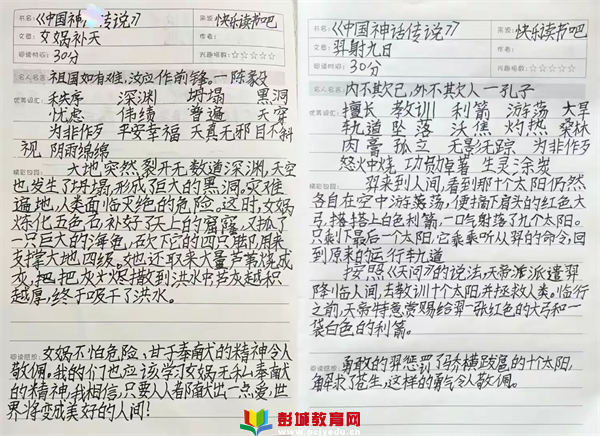 书名:《中国神话传说》 来源:快乐读书吧
文章:女娲补天
阅读时间:30分 兴趣指数:☆☆☆☆☆
名人名言:祖国如有难,汝应作前锋。—陈毅
优美词汇:秩序 深渊 坍塌 黑洞
忧虑 伟绩 普遍 天穿
为非作歹 平安幸福 天真无邪 目不斜
视 阴雨绵绵
精彩句段:大地突然裂开无数道深渊,天空
也发生了坍塌,形成了巨大的黑洞。灾难
遍地,人类面临灭绝的危险。这时,女娲
炼化五色石,补好了天上的窟窿,又抓了
一只巨大的海龟,砍下它的四只脚,用来
支撑大地四级。她还取来大量芦苇烧成
灰,把,把灰火烬撒到洪水中芦灰越积
越厚,终于吸干了洪水。
阅读感想:女娲不怕危险、甘于奉献的精神令人
敬佩。我的们也应该学习女娲无私奉献
的精神,我相信,只要人人都献出一点爱,世
界将变成美好的人间!
书名:《中国神话传说》 来源:快乐读书吧
文章:羿射九日
阅读时间:30分 兴趣指数:☆☆☆☆☆
名人名言:内不欺己,外不欺人—孔子
优美词汇:擅长 教训 利箭 游荡 大旱
轨道 坠落 沃焦 灼热 桑林
肉膏 孤立 无影无踪 为非作歹
怒火中烧 功勋卓著 生灵涂炭
精彩句段:羿来到人间,看到那十个太阳仍然
各自在空中游荡,便摘下肩头的红色大
弓,搭搭上白色利箭,一口气射落了九个太阳。
只剩下最后一个太阳,它乖乖听从羿的命令,回
到原来的运行轨道
按照《天问》的说法,天帝派派遣羿
降临人间,去教训十个太阳,并拯救人类。临行
之前,天帝特意赏赐给羿一张红色的大弓和一
袋白色的利箭。
阅读感想:勇敢的羿惩罚了骄横跋扈的十个太阳,
解救了苍生,这样的勇气令人敬佩。
彭城教育网
www.pcjyedu.cn